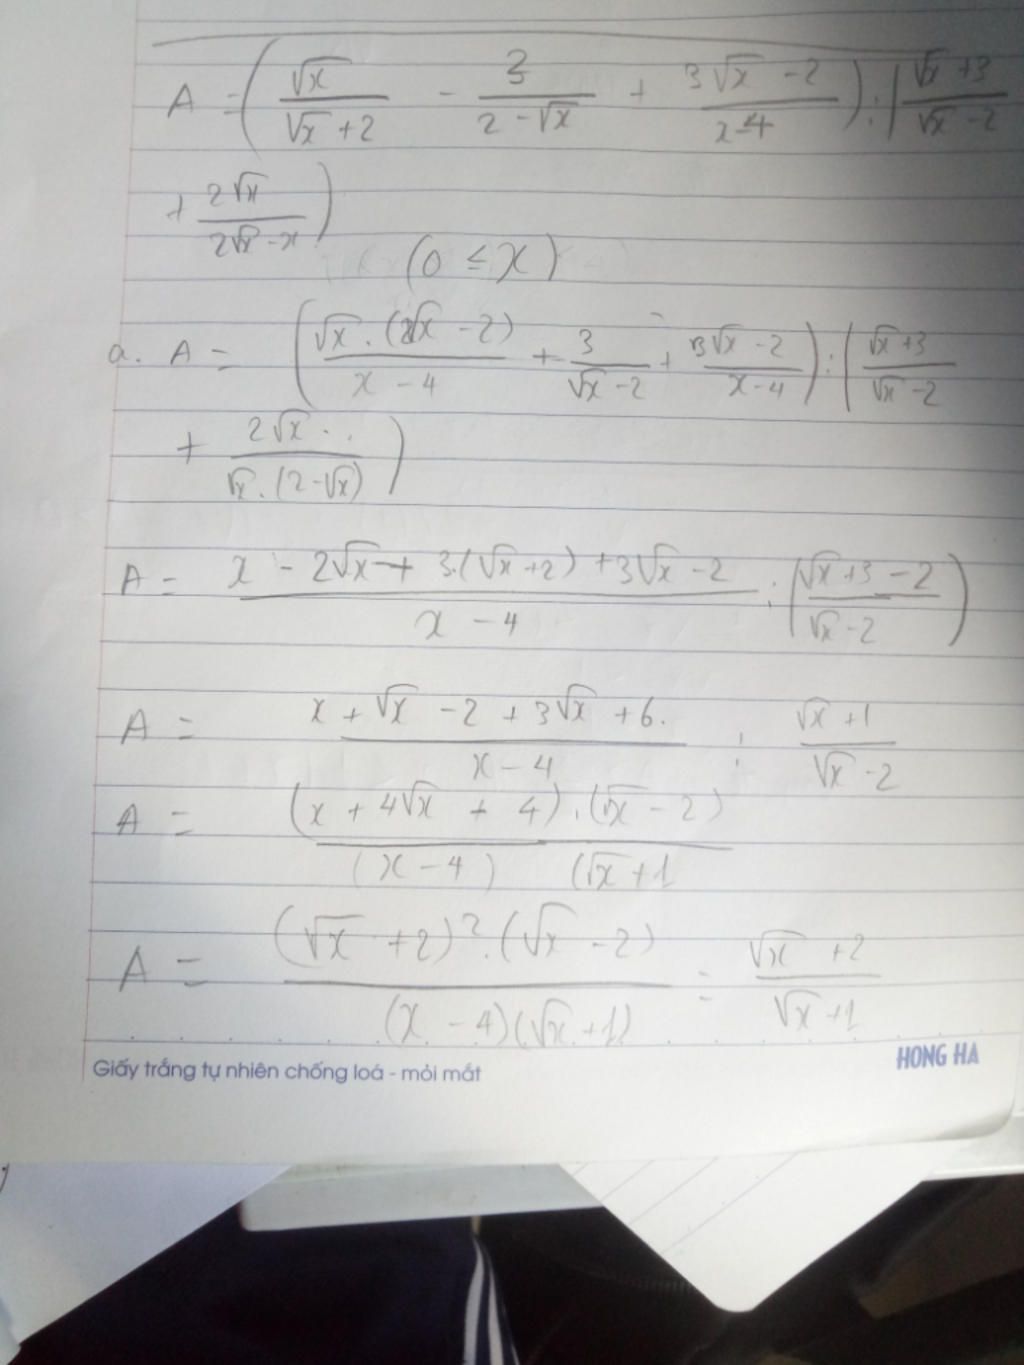 A = ( √x / (√x + 2) - 3 / (2 - √x) + (3√x - 2) / (x - 4) ) : ( (√x + 3) / (√x - 2)
+ 2√x / (2√x - x) )
(0 ≤ x)
a. A = ( √x . (√x - 2) / (x - 4) + 3 / (√x - 2) + (3√x - 2) / (x - 4) ) : ( (√x + 3) / (√x - 2)
+ 2√x / (√x . (2 - √x)) )
A = (x - 2√x + 3.(√x + 2) + 3√x - 2) / (x - 4) : ( (√x + 3 - 2) / (√x - 2) )
A = (x + √x - 2 + 3√x + 6) / (x - 4) : (√x + 1) / (√x - 2)
A = (x + 4√x + 4) . (√x - 2) / (x - 4) (√x + 1
A = (√x + 2)² . (√x - 2) / (x - 4)(√x + 1) = (√x + 2) / (√x + 1)
Giấy trắng tự nhiên chống loá - mỏi mắt HONG HA